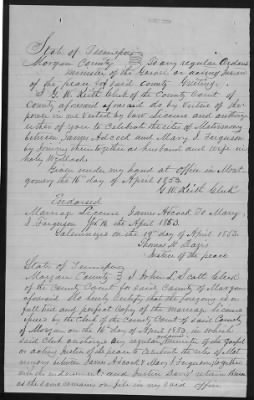 State of Tennessee
Morgan County To any regular Ordained
Minister of the Gospel or acting Justice
of the peace for said County Greeting.
I G. W. Keith Clerk of the County Court of
County aforesaid do by virtue of the
power in me vested by law License and authorize
either of you to Celebrate the rites of Matrimony
between James Adcock and Mary J Ferguson
by Joining them together as husband and Wife in
holy Wedlock
Given under my hand at office in Mont-
gomery the 16th day of April 1853
G W Keith Clerk
Endorsed
Marriage License James Adcock To Mary
J Ferguson the 16 April 1853.
Solemnized on the 19th day of April 1853.
Thomas H Davis
Justice of the peace
State of Tennessee
Morgan County I John L Scott Clerk
of the County Court for said County of Morgan
aforesaid do hereby Certify that the foregoing is a
full true and perfect Copy of the marriage license
issued by the Clerk of the County Court of said County
of Morgan on the 16th day of April 1853 in which
said Clerk authorizes any regular Minister of the Gospel
or acting Justice of the peace to Celebrate the rites of Mat
rimony between James Adcock & Mary J Ferguson, together
with the endorsement and Justice Davis' return thereon
as the same remains on file in my said office.